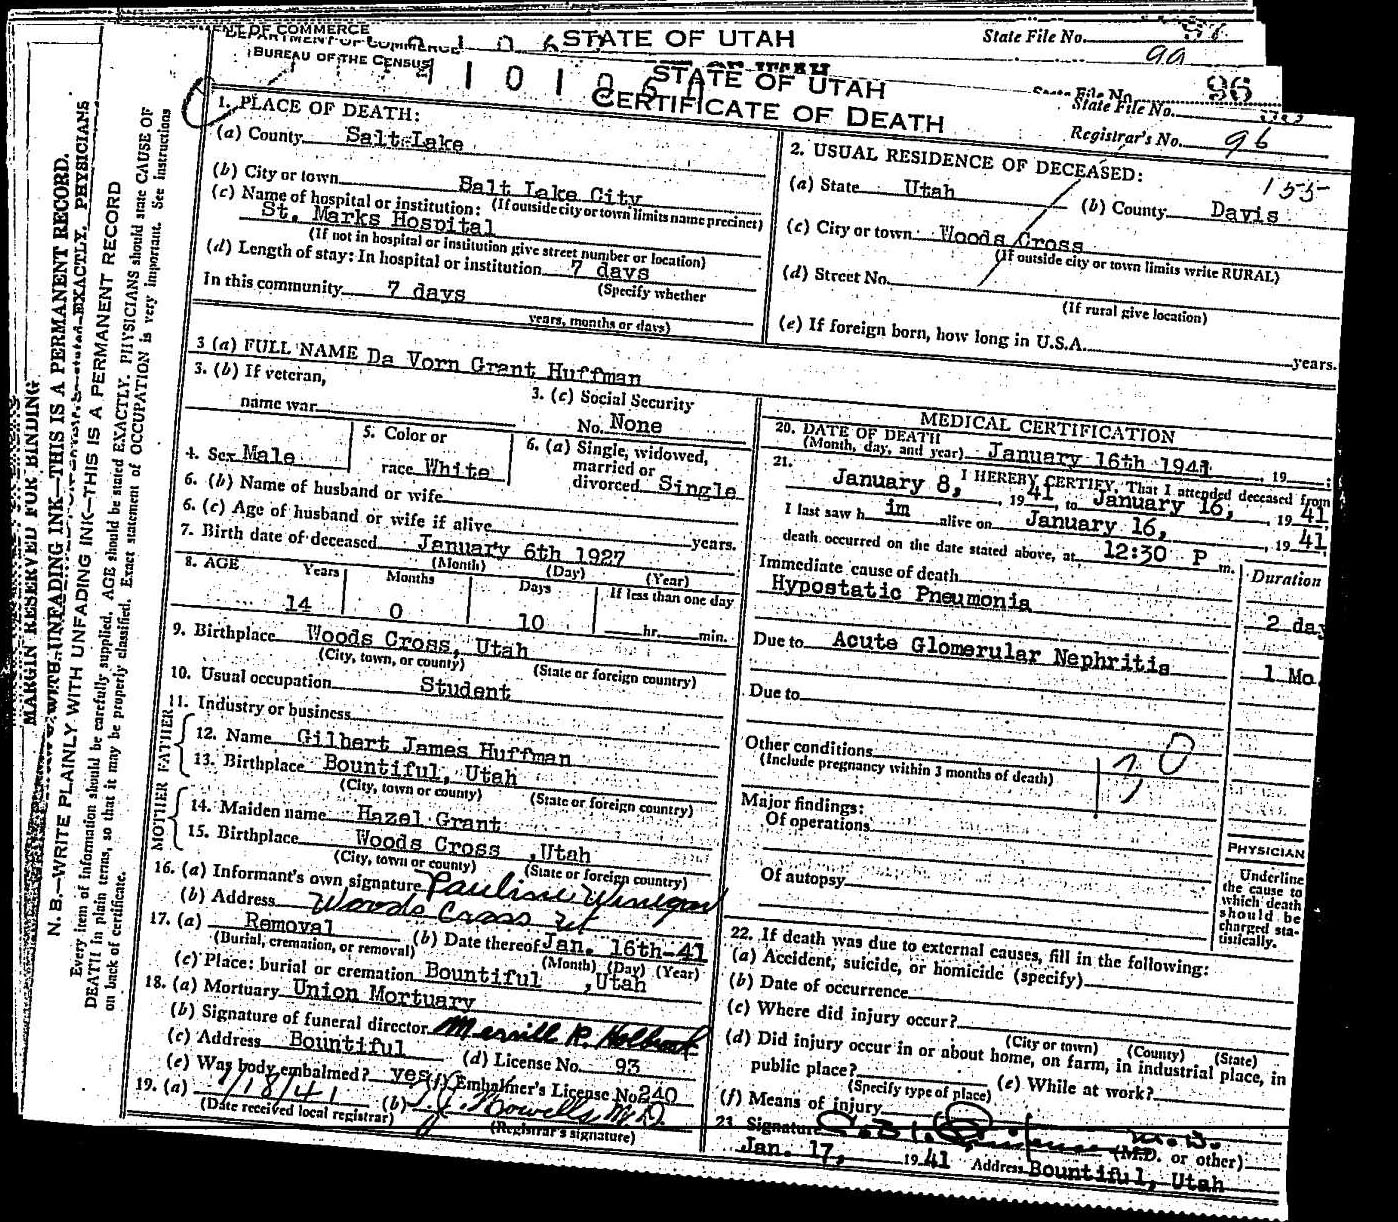 DEPARTMENT OF COMMERCE
BUREAU OF THE CENSUS
STATE OF UTAH
STATE OF UTAH
CERTIFICATE OF DEATH
State File No.
99
96
State File No.
Registrar's No. 96
MARGIN RESERVED FOR BINDING
N. B.—WRITE PLAINLY WITH UNFADING INK—THIS IS A PERMANENT RECORD
Every item of information should be carefully supplied. AGE should be stated EXACTLY. PHYSICIANS should state CAUSE OF
DEATH in plain terms, so that it may be properly classified. Exact statement of OCCUPATION is very important. See instructions
on back of certificate.
1. PLACE OF DEATH:
(a) County Salt Lake
(b) City or town Salt Lake City
(If outside city or town limits name precinct)
(c) Name of hospital or institution:
St. Marks Hospital
(If not in hospital or institution give street number or location)
(d) Length of stay: In hospital or institution 7 days
(Specify whether
In this community 7 days
years, months or days)
2. USUAL RESIDENCE OF DECEASED:
155
(a) State Utah (b) County Davis
(c) City or town Woods Cross
(If outside city or town limits write RURAL)
(d) Street No.
(If rural give location)
(e) If foreign born, how long in U.S.A. years.
3 (a) FULL NAME Da Vorn Grant Huffman
3. (b) If veteran,
name war
3. (c) Social Security
No. None
4. Sex Male
5. Color or
race White
6. (a) Single, widowed,
married or
divorced Single
6. (b) Name of husband or wife
6. (c) Age of husband or wife if alive years.
7. Birth date of deceased January 6th 1927
(Month) (Day) (Year)
8. AGE Years Months Days If less than one day
14 0 10 hr. min.
9. Birthplace Woods Cross, Utah
(City, town, or county) (State or foreign country)
10. Usual occupation Student
11. Industry or business
FATHER
12. Name Gilbert James Huffman
13. Birthplace Bountiful, Utah
(City, town or county) (State or foreign country)
MOTHER
14. Maiden name Hazel Grant
15. Birthplace Woods Cross ,Utah
(City, town or county) (State or foreign country)
16. (a) Informant's own signature Pauline Winegar
(b) Address Woods Cross Ut
17. (a) Removal (b) Date thereof Jan. 16th-41
(Burial, cremation, or removal) (Month) (Day) (Year)
(c) Place: burial or cremation Bountiful ,Utah
18. (a) Mortuary Union Mortuary
(b) Signature of funeral director Merrill R. Holbrook
(c) Address Bountiful (d) License No. 93
(e) Was body embalmed? yes (f) Embalmer's License No 240
19. (a) 1/18/41 (b) T. J. Howells M.D.
(Date received local registrar) (Registrar's signature)
MEDICAL CERTIFICATION
20. DATE OF DEATH
(Month, day, and year) January 16th 1941 , 19 :
21. I HEREBY CERTIFY, That I attended deceased from
January 8, , 19 41, to January 16, , 19 41
I last saw h im alive on January 16, , 19 41,
death occurred on the date stated above, at 12:30 P m.
Immediate cause of death Duration
Hypostatic Pneumonia 2 day
Due to Acute Glomerular Nephritis 1 Mo
Due to
Other conditions
(Include pregnancy within 3 months of death)
130
Major findings:
Of operations
Of autopsy
PHYSICIAN
Underline
the cause to
which death
should be
charged sta-
tistically.
22. If death was due to external causes, fill in the following:
(a) Accident, suicide, or homicide (specify)
(b) Date of occurrence
(c) Where did injury occur?
(City or town) (County) (State)
(d) Did injury occur in or about home, on farm, in industrial place, in
public place? (e) While at work?
(Specify type of place)
(f) Means of injury
23. Signature M.D.
(M.D. or other)
Jan. 17, 19 41 Address Bountiful, Utah